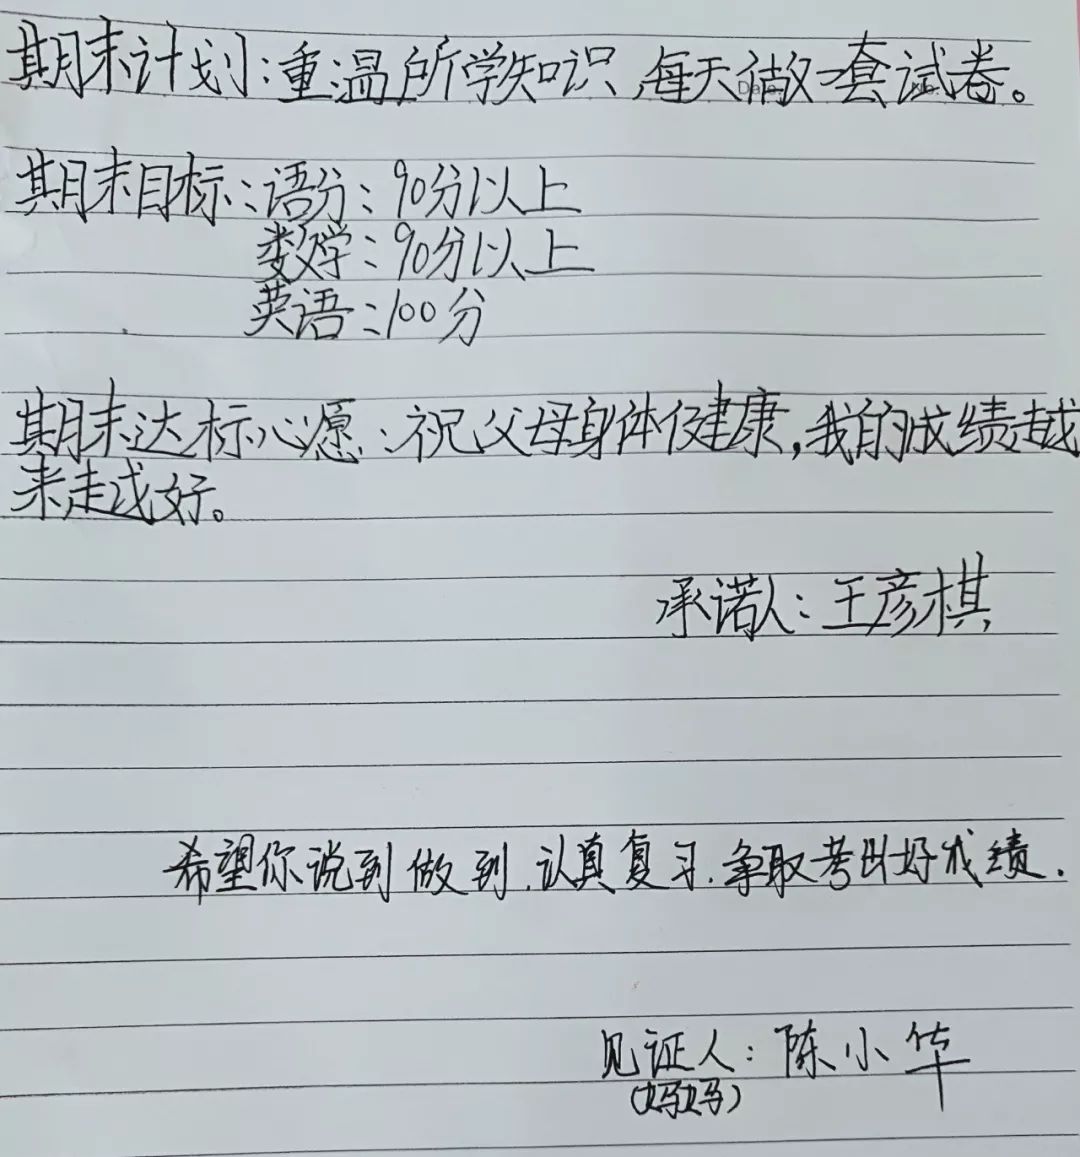 期末计划:重温所学知识,每天做一套试卷。
期末目标:语分:90分以上
数学:90分以上
英语:100分
期末达标心愿:祝父母身体健康,我的成绩越
来越好。
承诺人:王彦棋
希望你说到做到.认真复习.争取考出好成绩.
见证人:陈小华
(妈妈)